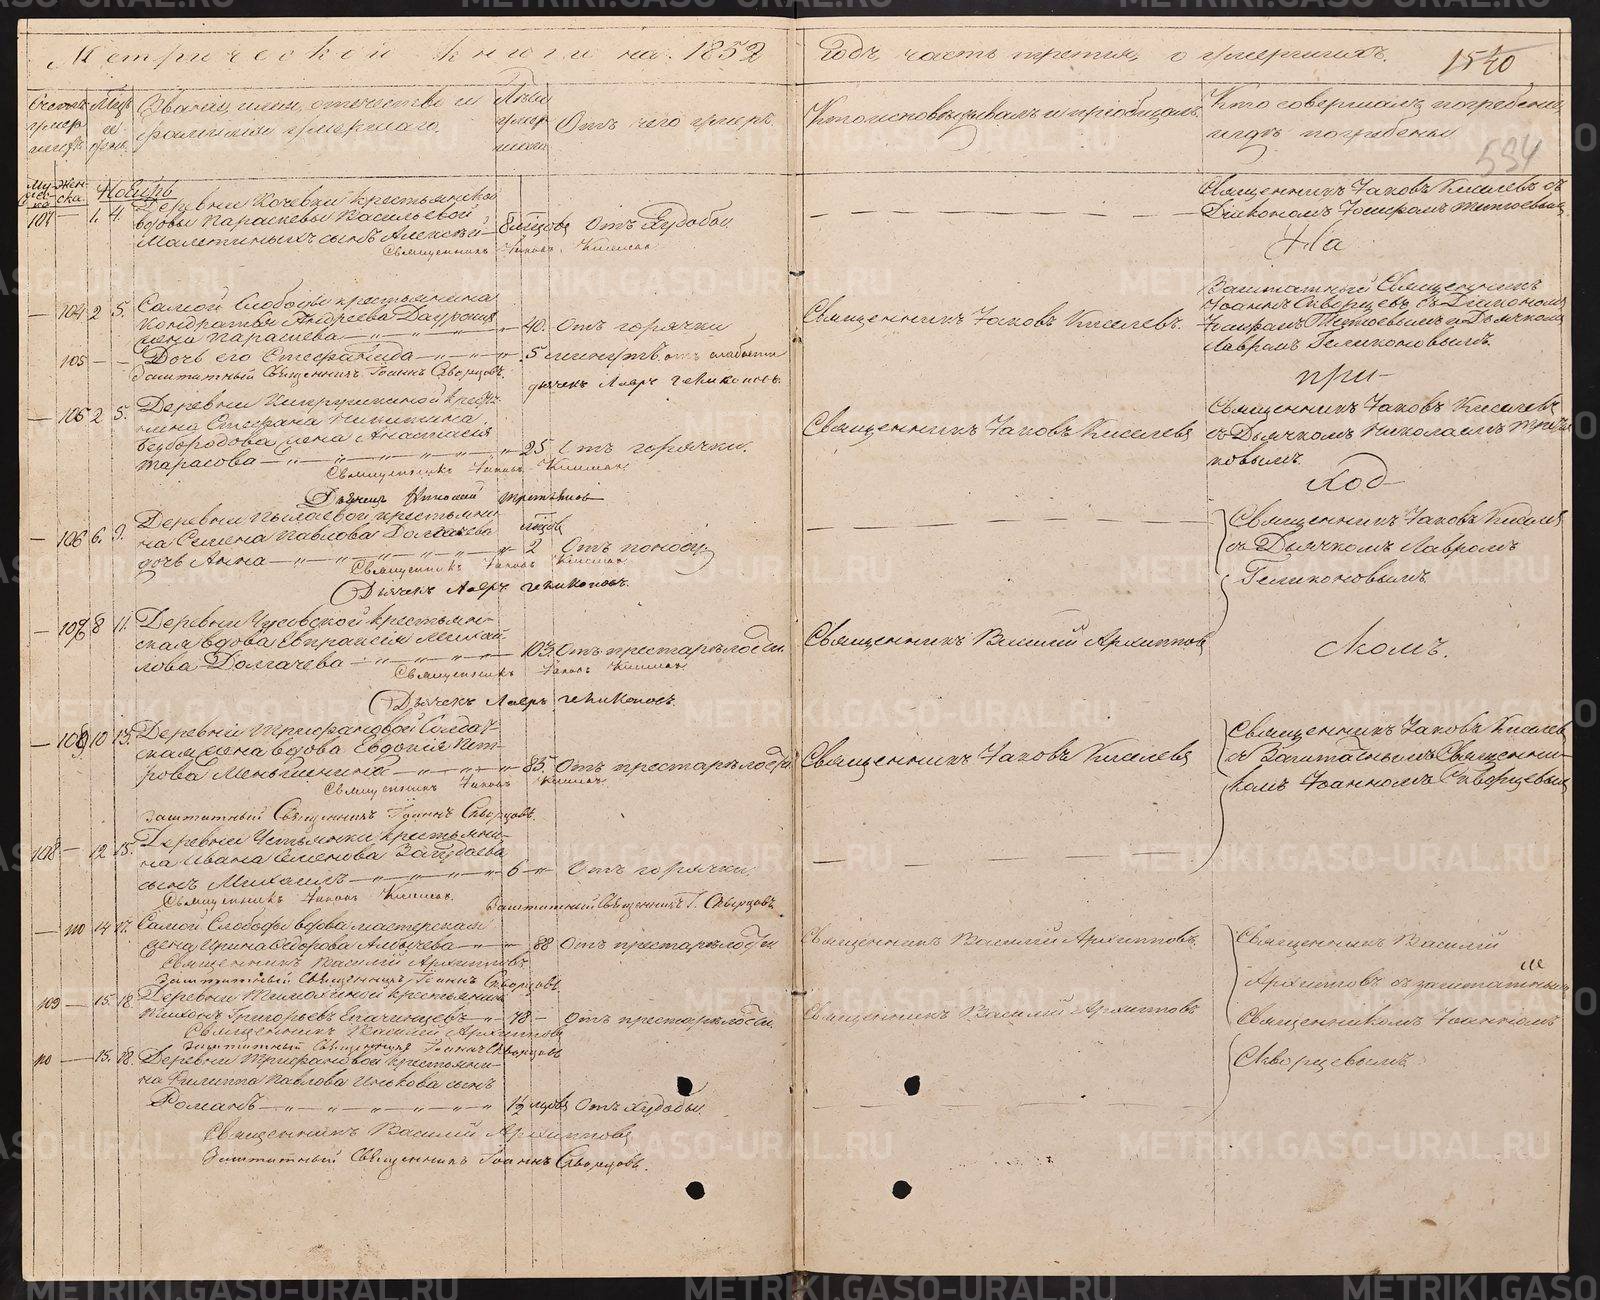 Метрической книги на 1852
Годъ, часть третія, о умершихъ.
1540
534
Счетъ умершихъ
Мцъ и день
Званіе, имя, отчество и фамилія умершаго.
Лѣта умершаго
Отъ чего умеръ.
Кто исповѣдывалъ и пріобщалъ.
Кто совершалъ погребеніе, и гдѣ погребены
Мужеска
Женска
Ноябрь
107 — 1. 4. Деревни Кочевки крестьянской
вдовы Параскевы Васильевой
сынъ Алексѣй — 8 мѣсяцовъ Отъ Худобы.
Священникъ Іаковъ Киселевъ
Священникъ Іаковъ Киселевъ съ
Діакономъ
На
— 104 2 5. Самой Слободы крестьянина
Кондратья Андреева Даурскихъ
жена Параскева — 40. Отъ горячки
Священникъ Іаковъ Киселевъ.
Заштатный Священникъ
Іоаннъ Скворцевъ съ Діакономъ
и Дьячкомъ
Лавромъ Геликоновымъ.
105 — — Дочь его Стефанида — 5 минутъ. отъ слабости
Заштатный Священникъ Іоаннъ Скворцовъ.
дьячекъ Лавръ Геликоновъ.
при-
— 106 2 5. Деревни крестьянина Стефана Никитина
Бѣлобородова жена Анастасія
Тарасова — 25 Отъ горячки.
Священникъ Іаковъ Киселевъ
Дьячекъ Николай Третьяков
Священникъ Іаковъ Киселевъ
Священникъ Іаковъ Киселевъ
съ Дьячкомъ Николаемъ Третьяковымъ.
ход-
— 106 6. 9. Деревни Пылаевой крестьянина Семена Павлова Долгачева
дочь Анна — 2 мѣсяцовъ Отъ поносу
Священникъ Іаковъ Киселевъ
Дьячекъ Лавръ Геликоновъ.
Священникъ Іаковъ Киселевъ
съ Дьячкомъ Лавромъ
Геликоновымъ
8 11. Деревни Чусовской крестьянская вдова Евпраксія Михайлова Долгачева — 103. Отъ престарѣлости.
Священникъ Іаковъ Киселевъ
Дьячекъ Лавръ Геликоновъ.
Священникъ Василій Архиповъ
ломъ.
— 109 10 13. Деревни Трифановой Солдатская жена вдова Евдокія Петрова Меньшенина — 85. Отъ престарѣлости
Священникъ Іаковъ Киселевъ
Заштатный Священникъ Іоаннъ Скворцовъ.
Священникъ Іаковъ Киселевъ
Священникъ Іаковъ Киселевъ
съ Заштатнымъ Священникомъ Іоанномъ Скворцевымъ
108 — 12 15. Деревни крестьянина Ивана Семенова
сынъ Михаилъ — 6 — Отъ горячки.
Священникъ Іаковъ Киселевъ.
Заштатный Священникъ І. Скворцовъ.
— 110 14 17. Самой Слободы вдова мастерская
жена Ирина Ѳедорова Алпычева — 88 Отъ престарѣлости
Священникъ Василій Архиповъ
Заштатный Священникъ Іоаннъ Скворцовъ
Священникъ Василій Архиповъ.
Священникъ Василій
Архиповъ съ заштатнымъ
Священникомъ Іоанномъ
Скворцевымъ
109 — 15. 18. Деревни Тимохиной крестьянинъ
Тихонъ Григорьевъ Епачинцевъ — 78 — Отъ престарѣлости.
Священникъ Василій Архиповъ
Заштатный Священникъ Іоаннъ Скворцовъ
Священникъ Василій Архиповъ
110 — 15. 18. Деревни Трифановой крестьянина Филиппа Павлова Инькова сынъ
Романъ — 1½ мѣсяцовъ Отъ Худобы.
Священникъ Василій Архиповъ
Заштатный Священникъ Іоаннъ Скворцовъ.
METRIKI.GASO-URAL.RU